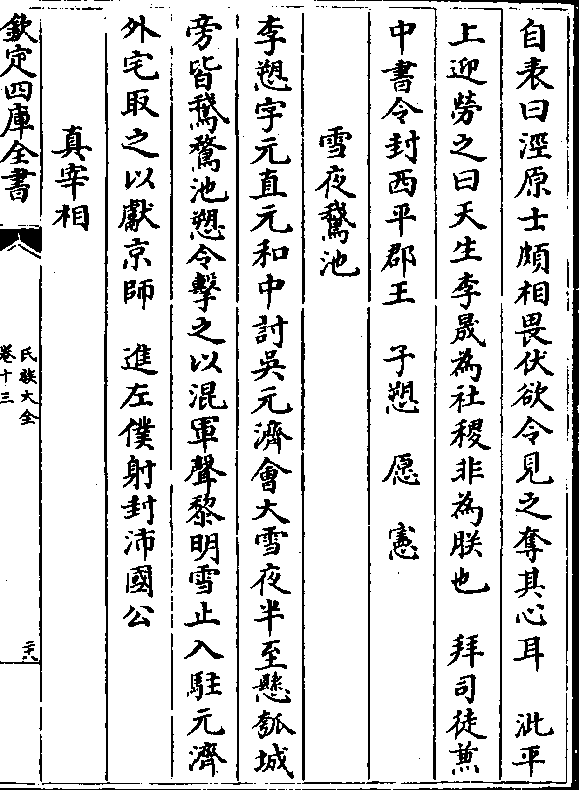 自表曰涇原士頗相畏伏欲令見之奪其心耳　泚平
上迎勞之曰天生李晟為社稷非為朕也　拜司徒兼
中書令封西平郡王　子愬　愿　憲
雪夜鵞池
李愬字元直元和中討吳元濟會大雪夜半至懸瓠城
旁皆鵞鶩池愬令擊之以混軍聲黎明雪止入駐元濟
外宅取之以獻京師　進左僕射封沛國公
真宰相
欽定四庫全書
氏族大全
卷十三
二十八